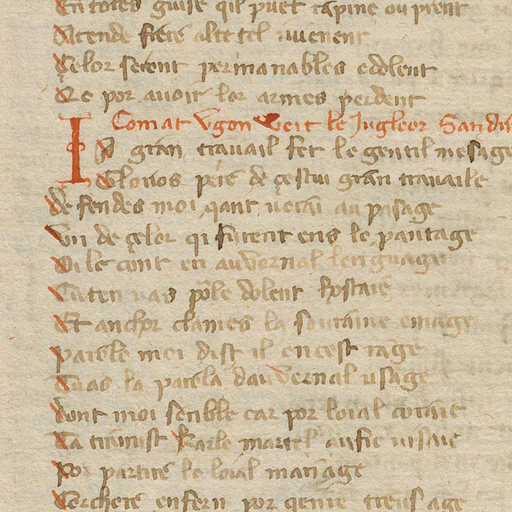 En totes guise qil puet rapine ou prent
Atende frere alte tel iuvenent
Celor seront permanables e dolent
Qe por avoir lor armes perdent
Comat Ugon veit le Jugleor Sandi
In gran travail fet le gentil mesage
Glorios pere de cestui gran travaile
De fendes moi qant verai au pasage
Un de celor qi furent ens le pantage
Oi le cont en auvernal lenguage
Cu ten vas pole dolent hostaie
Et anchor clames la soutaine emage
Parole moi dist il en cest rage
Tu as la parola dauvernal usage
Dont moi senble car por loial coraie
Ta tramist Karle martel au fer visaie
Por partire le loial mariage
Cerchere enfern por qerire treusage